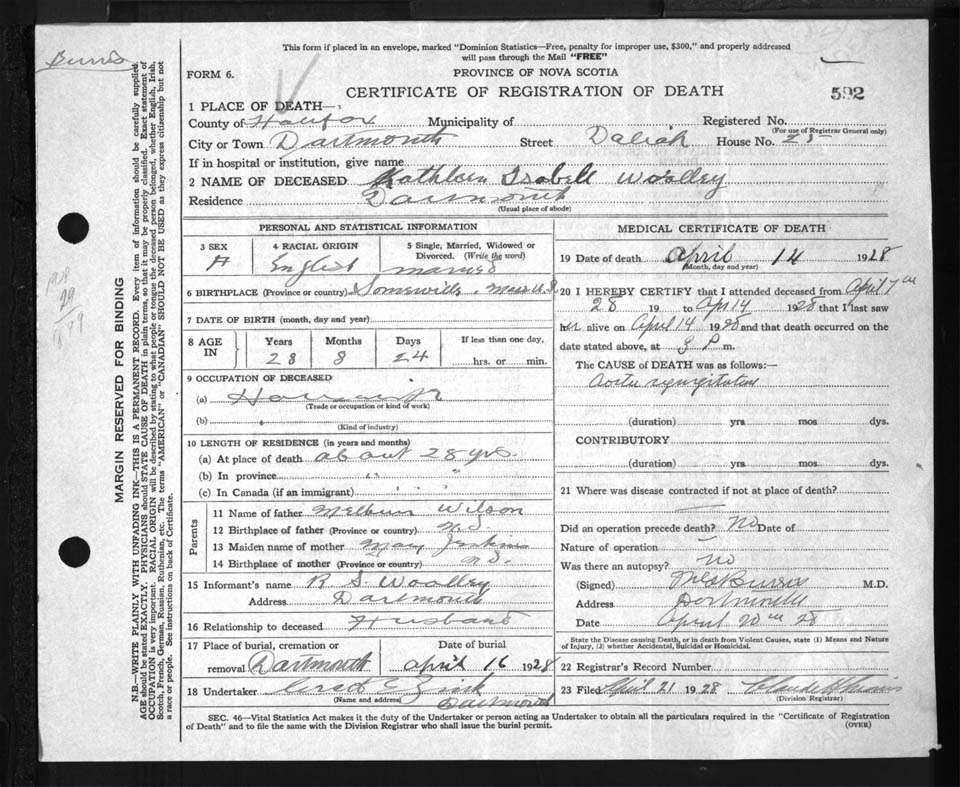 This form if placed in an envelope, marked "Dominion Statistics—Free, penalty for improper use, $300," and properly addressed
will pass through the Mail "FREE"
FORM 6.
PROVINCE OF NOVA SCOTIA
CERTIFICATE OF REGISTRATION OF DEATH
592
Burris
1 PLACE OF DEATH—
County of Halifax Municipality of Registered No.
(For use of Registrar General only)
City or Town Dartmouth Street Daliah House No. 25
If in hospital or institution, give name
2 NAME OF DECEASED Kathleen Isabell Woolley
Residence Dartmouth
(Usual place of abode)
PERSONAL AND STATISTICAL INFORMATION
3 SEX
4 RACIAL ORIGIN
English
5 Single, Married, Widowed or
Divorced. (Write the word)
married
6 BIRTHPLACE (Province or country) Somerville, Mass
7 DATE OF BIRTH (month, day and year)
8 AGE
IN
Years Months Days If less than one day,
28 8 24 hrs. or min.
9 OCCUPATION OF DECEASED
(a)
(Trade or occupation or kind of work)
(b)
(Kind of industry)
10 LENGTH OF RESIDENCE (in years and months)
(a) At place of death about 28 yrs.
(b) In province " "
(c) In Canada (if an immigrant)
Parents
11 Name of father Wilson
12 Birthplace of father (Province or country) N.S.
13 Maiden name of mother May
14 Birthplace of mother (Province or country) N.S.
15 Informant's name R S Woolley
Address Dartmouth
16 Relationship to deceased Husband
17 Place of burial, cremation or Date of burial
removal Dartmouth April 16 1928
18 Undertaker Zink
(Name and address) Dartmouth
MEDICAL CERTIFICATE OF DEATH
19 Date of death April 14 1928
(Month, day and year)
20 I HEREBY CERTIFY that I attended deceased from April 7th
28 19 to Apr 14 1928 that I last saw
her alive on April 14 1928 and that death occurred on
date stated above, at P m.
The CAUSE OF DEATH was as follows:
Aortic regurgitation
(duration) yrs mos dys.
CONTRIBUTORY
(duration) yrs. mos dys.
21 Where was disease contracted if not at place of death?
Did an operation precede death? No Date of
Nature of operation
Was there an autopsy? No
(Signed) Burris M.D.
Address Dartmouth
Date April 20th 28
State the Disease causing Death, or in death from Violent Causes, state (1) Means and Nature
of Injury, (2) whether Accidental, Suicidal or Homicidal.
22 Registrar's Record Number
23 Filed April 21 1928
(Division Registrar)
SEC. 46—Vital Statistics Act makes it the duty of the Undertaker or person acting as Undertaker to obtain all the particulars required in the "Certificate of Registration
of Death" and to file the same with the Division Registrar who shall issue the burial permit.
(OVER)
MARGIN RESERVED FOR BINDING
N.B.—WRITE PLAINLY WITH UNFADING INK—THIS IS A PERMANENT RECORD. Every item of information should be carefully supplied.
AGE should be stated EXACTLY. PHYSICIANS should STATE CAUSE OF DEATH in plain terms, so that it may be properly classified. Exact statement of
OCCUPATION is very important. RACIAL ORIGIN will be described by stating to what people or tongue the deceased person belonged, whether English, Irish,
Scotch, French, German, Russian, Ruthenian, etc. The terms "AMERICAN" or "CANADIAN" SHOULD NOT BE USED as they express citizenship but not
a race or people. See instructions on back of Certificate.
1928
29
1899